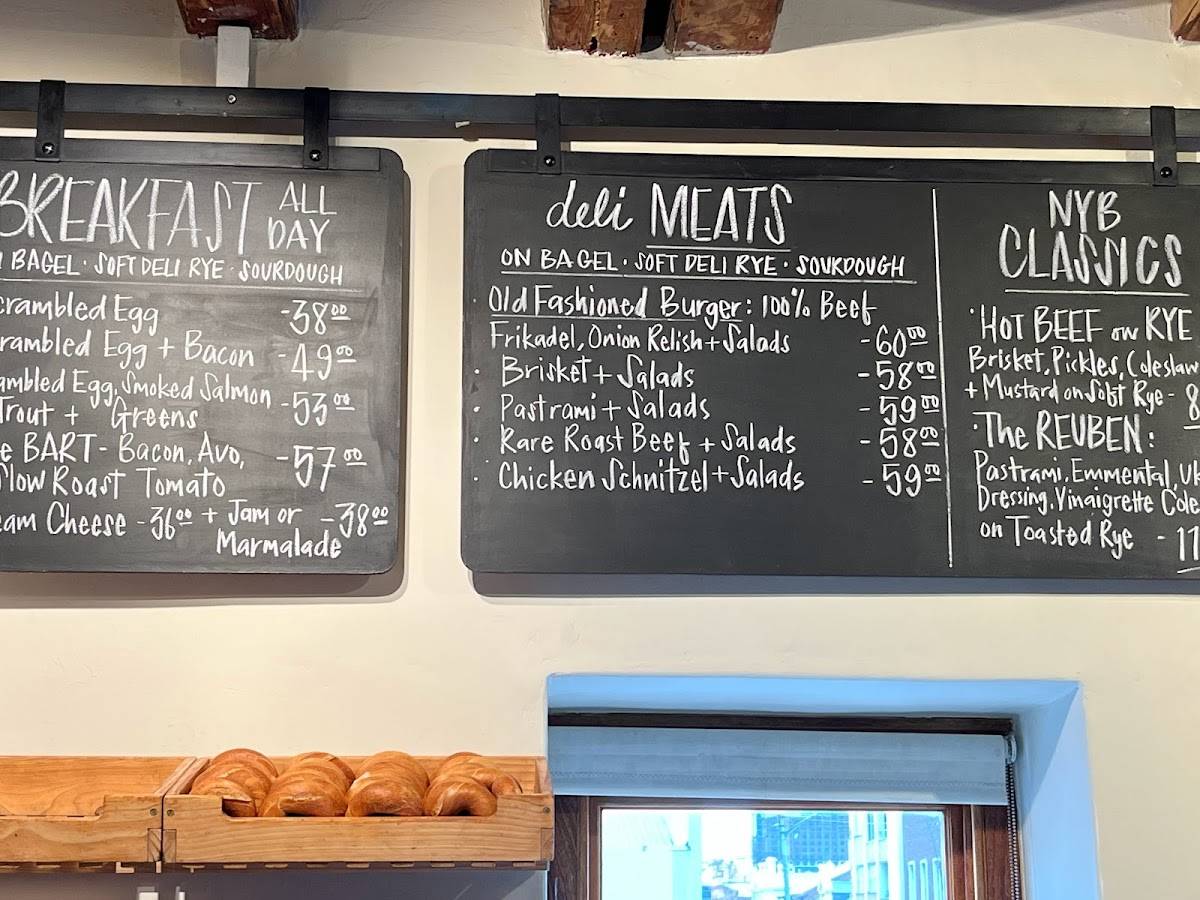 BREAKFAST ALL DAY
BAGEL · SOFT DELI RYE · SOURDOUGH
Egg -38⁰⁰
Egg + Bacon -49⁰⁰
Egg, Smoked Salmon
Trout + Greens -53⁰⁰
BART - Bacon, Avo,
Slow Roast Tomato -57⁰⁰
Cheese -36⁰⁰ + Jam or -38⁰⁰
Marmalade
deli MEATS
ON BAGEL · SOFT DELI RYE · SOURDOUGH
· Old Fashioned Burger: 100% Beef
Frikadel, Onion Relish + Salads -60⁰⁰
· Brisket + Salads -58⁰⁰
· Pastrami + Salads -59⁰⁰
· Rare Roast Beef + Salads -58⁰⁰
· Chicken Schnitzel + Salads -59⁰⁰
NYB
CLASSICS
· HOT BEEF on RYE
Brisket, Pickles, Coleslaw
+ Mustard on Soft Rye -
· The REUBEN:
Pastrami, Emmental,
Dressing, Vinaigrette
on Toasted Rye -